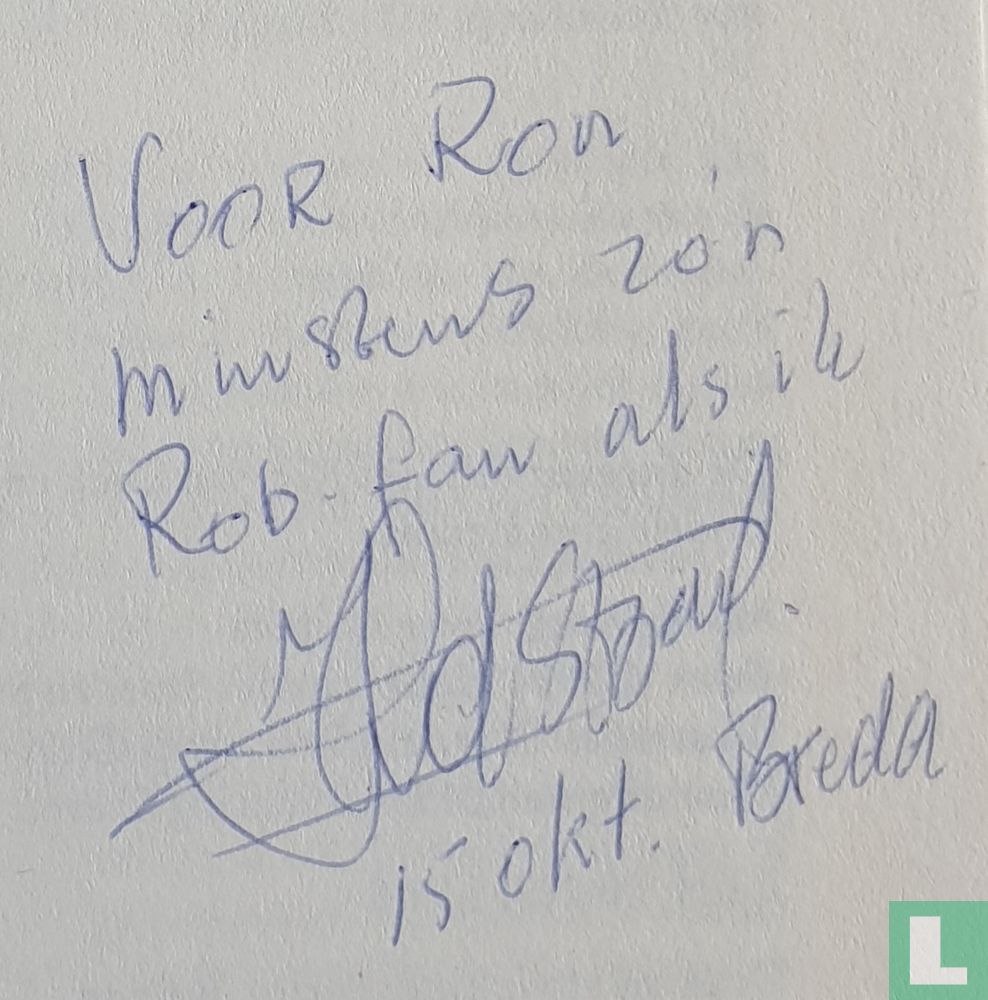 VOOR Ron
minstens zo'n
Rob. fan als ik
15 okt. Breda
L